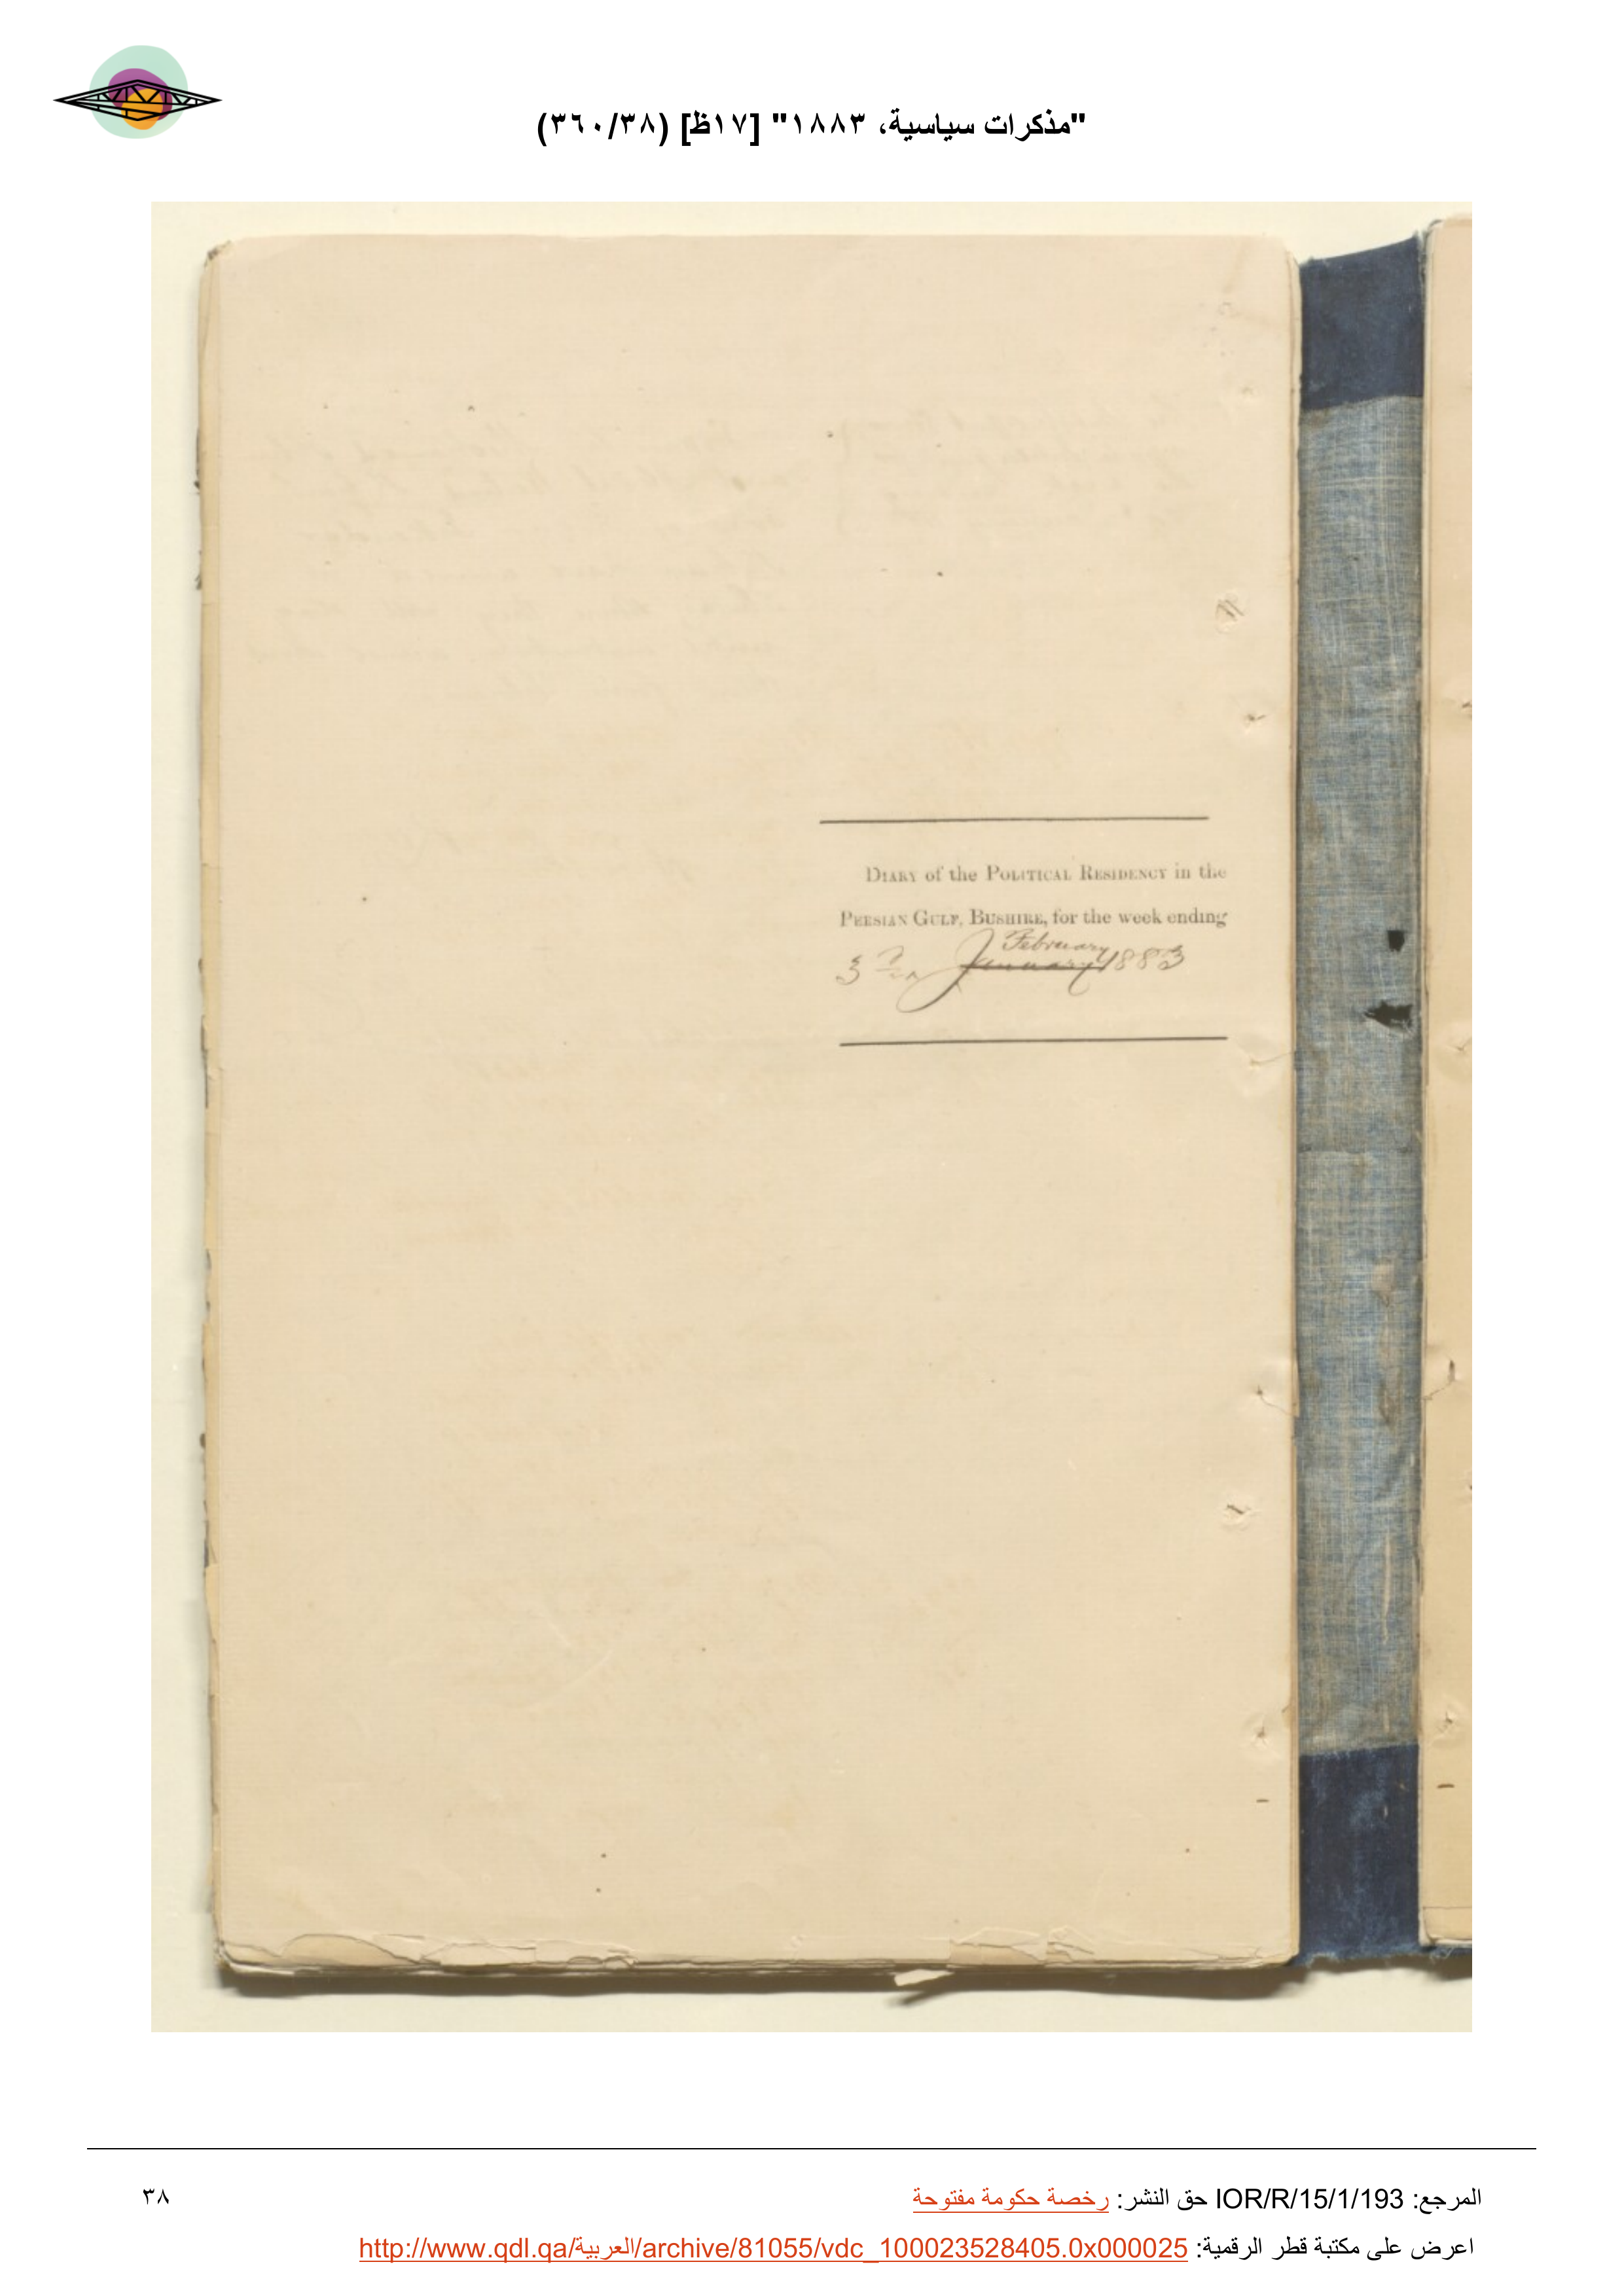 "مذكرات سياسية، ١٨٨٣" [١٧ظ] (٣٦٠/٣٨)
DIARY of the POLITICAL RESIDENCY in the
PERSIAN GULF, BUSHIRE, for the week ending
February
3 January 1883
المرجع: IOR/R/15/1/193 حق النشر: رخصة حكومة مفتوحة
٣٨
اعرض على مكتبة قطر الرقمية: http://www.qdl.qa/العربية/archive/81055/vdc_100023528405.0x000025